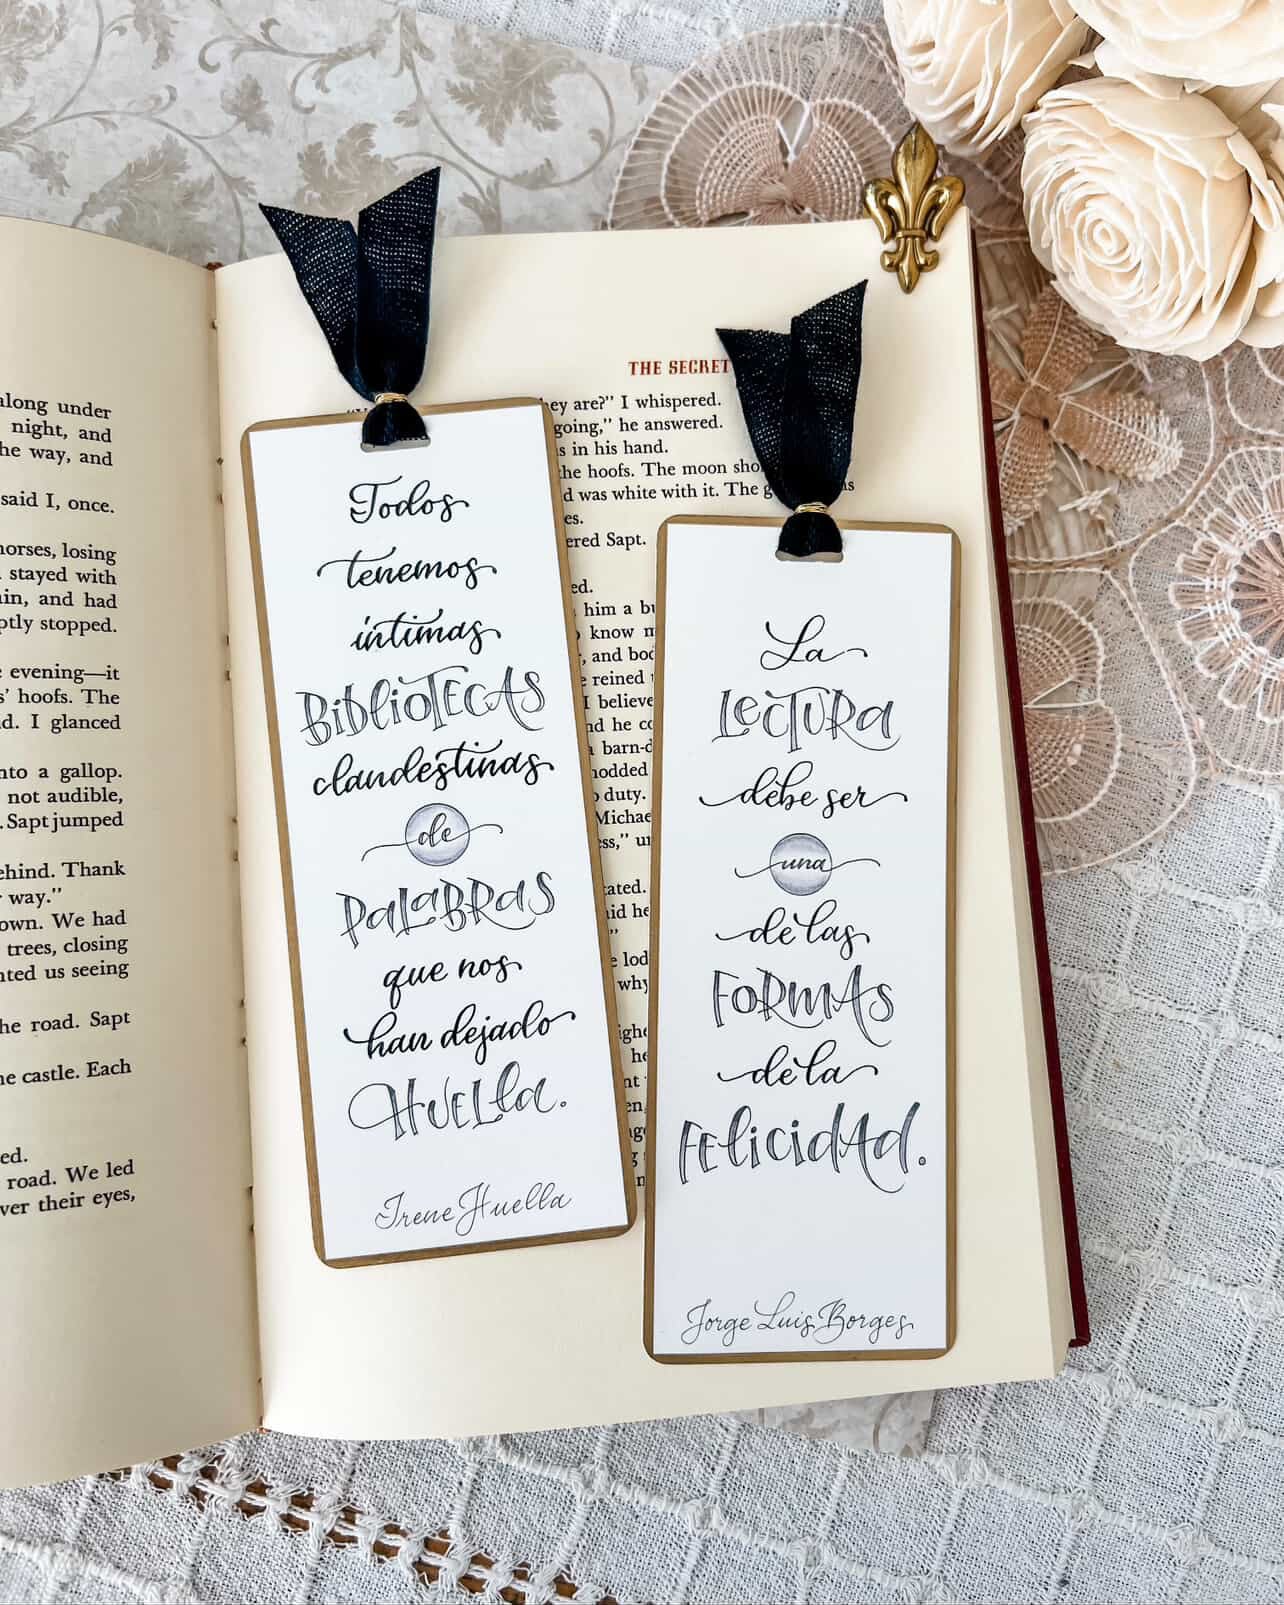 along under
night, and
he way, and
said I, once.
horses, losing
stayed with
in, and had
ptly stopped.
evening—it
s' hoofs. The
d. I glanced
nto a gallop.
not audible,
. Sapt jumped
ehind. Thank
way."
own. We had
trees, closing
nted us seeing
he road. Sapt
he castle. Each
ed.
road. We led
ver their eyes,
THE SECRET
hey are?" I whispered.
going," he answered.
s in his hand.
the hoofs. The moon sho
d was white with it. The g
es.
ered Sapt.
ed.
him a bu
know m
, and bod
e reined
I believe
nd he co
barn-d
nodded
duty.
Michae
ess," un
tated.
aid he
"
lod
why
ighe
he
nt
en,
Todos
tenemos
íntimas
BibliotECAS
clandestinas
de
PALABRAS
que nos
han dejado
HUELLa.
Irene Huella
La
LECTURA
debe ser
una
de las
FORMAS
de la
FElicidAd.
Jorge Luis Borges